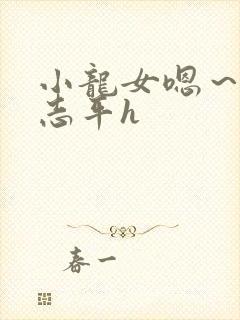 小龍女嗯~
志平h
春一